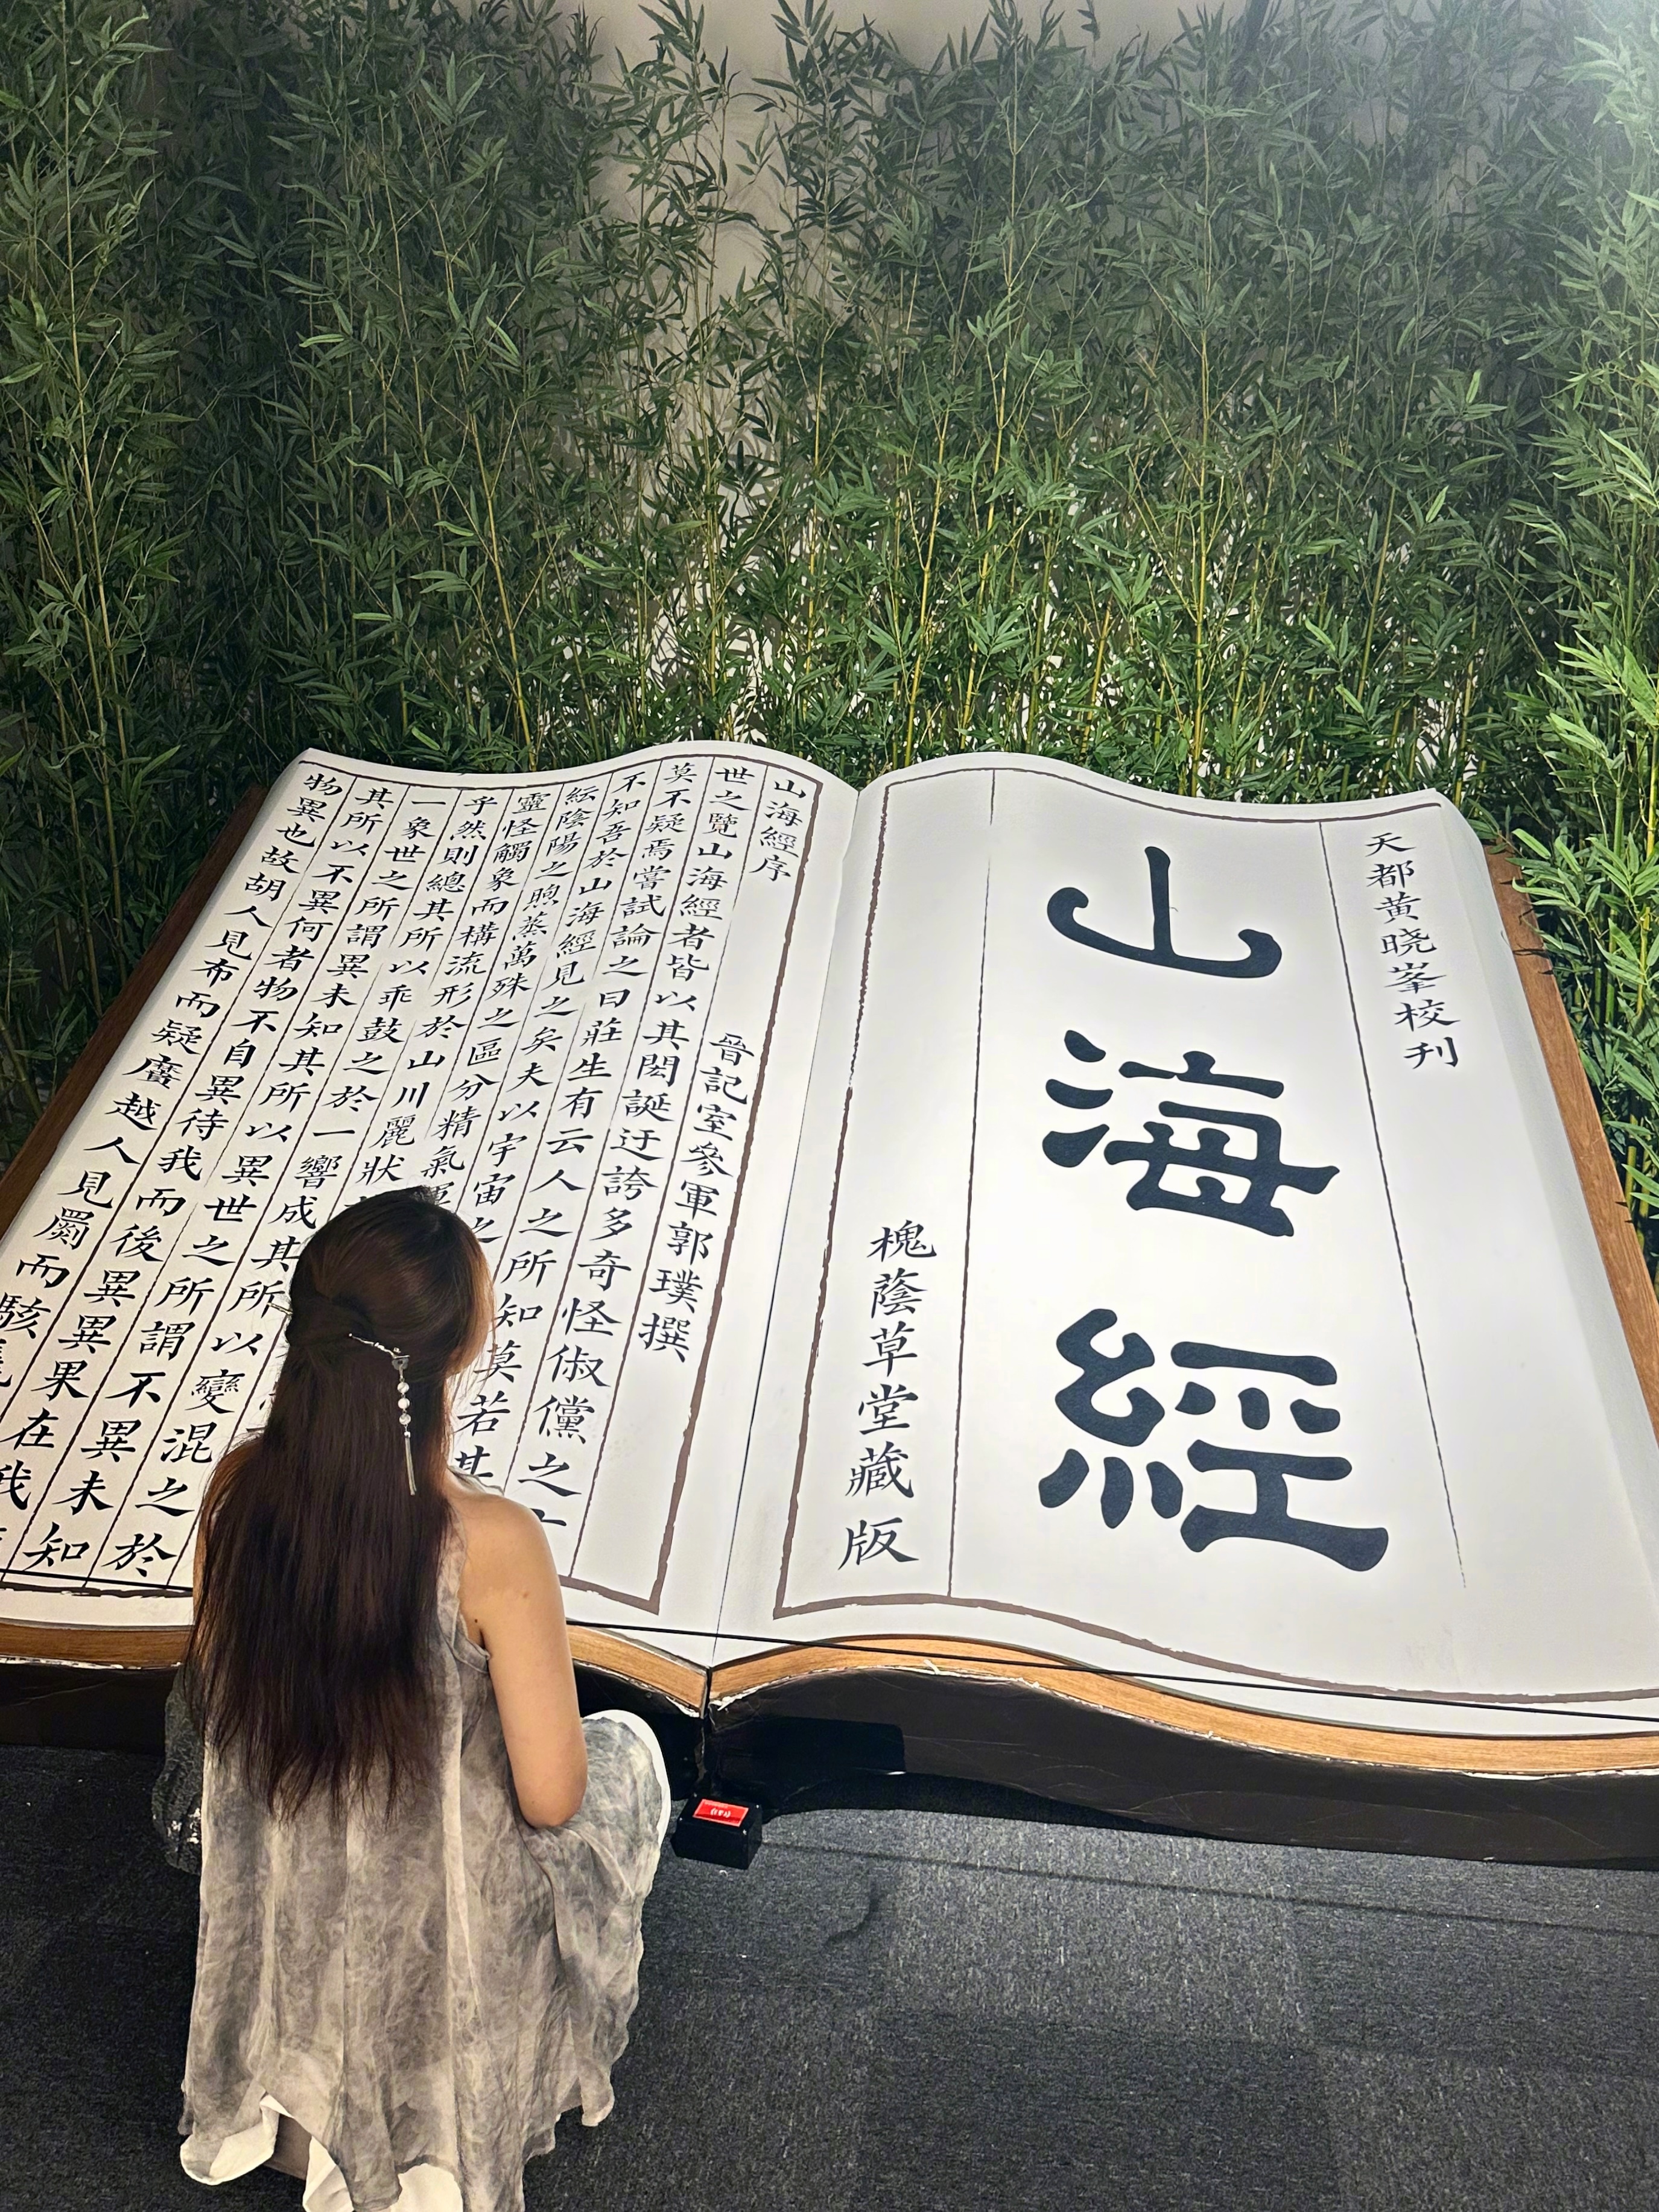 天都黄晓峯校刊
山海經
槐蔭草堂藏版
山海經序 晉記室參軍郭璞撰
世之覽山海經者皆以其閎誕迂誇多奇怪俶儻之
莫不疑焉嘗試論之曰莊生有云人之所知莫若其
不知吾於山海經見之矣夫以宇宙之
紜陰陽之煦蒸萬殊之區分精氣渾
靈怪觸象而構流形於山川麗狀
乎然則總其所以乖鼓之於一響成其所以變混之於
一象世之所謂異未知其所以異世之所謂不異未知
其所以不異何者物不自異待我而後異異果在我
物異也故胡人見布而疑黂越人見罽而駭